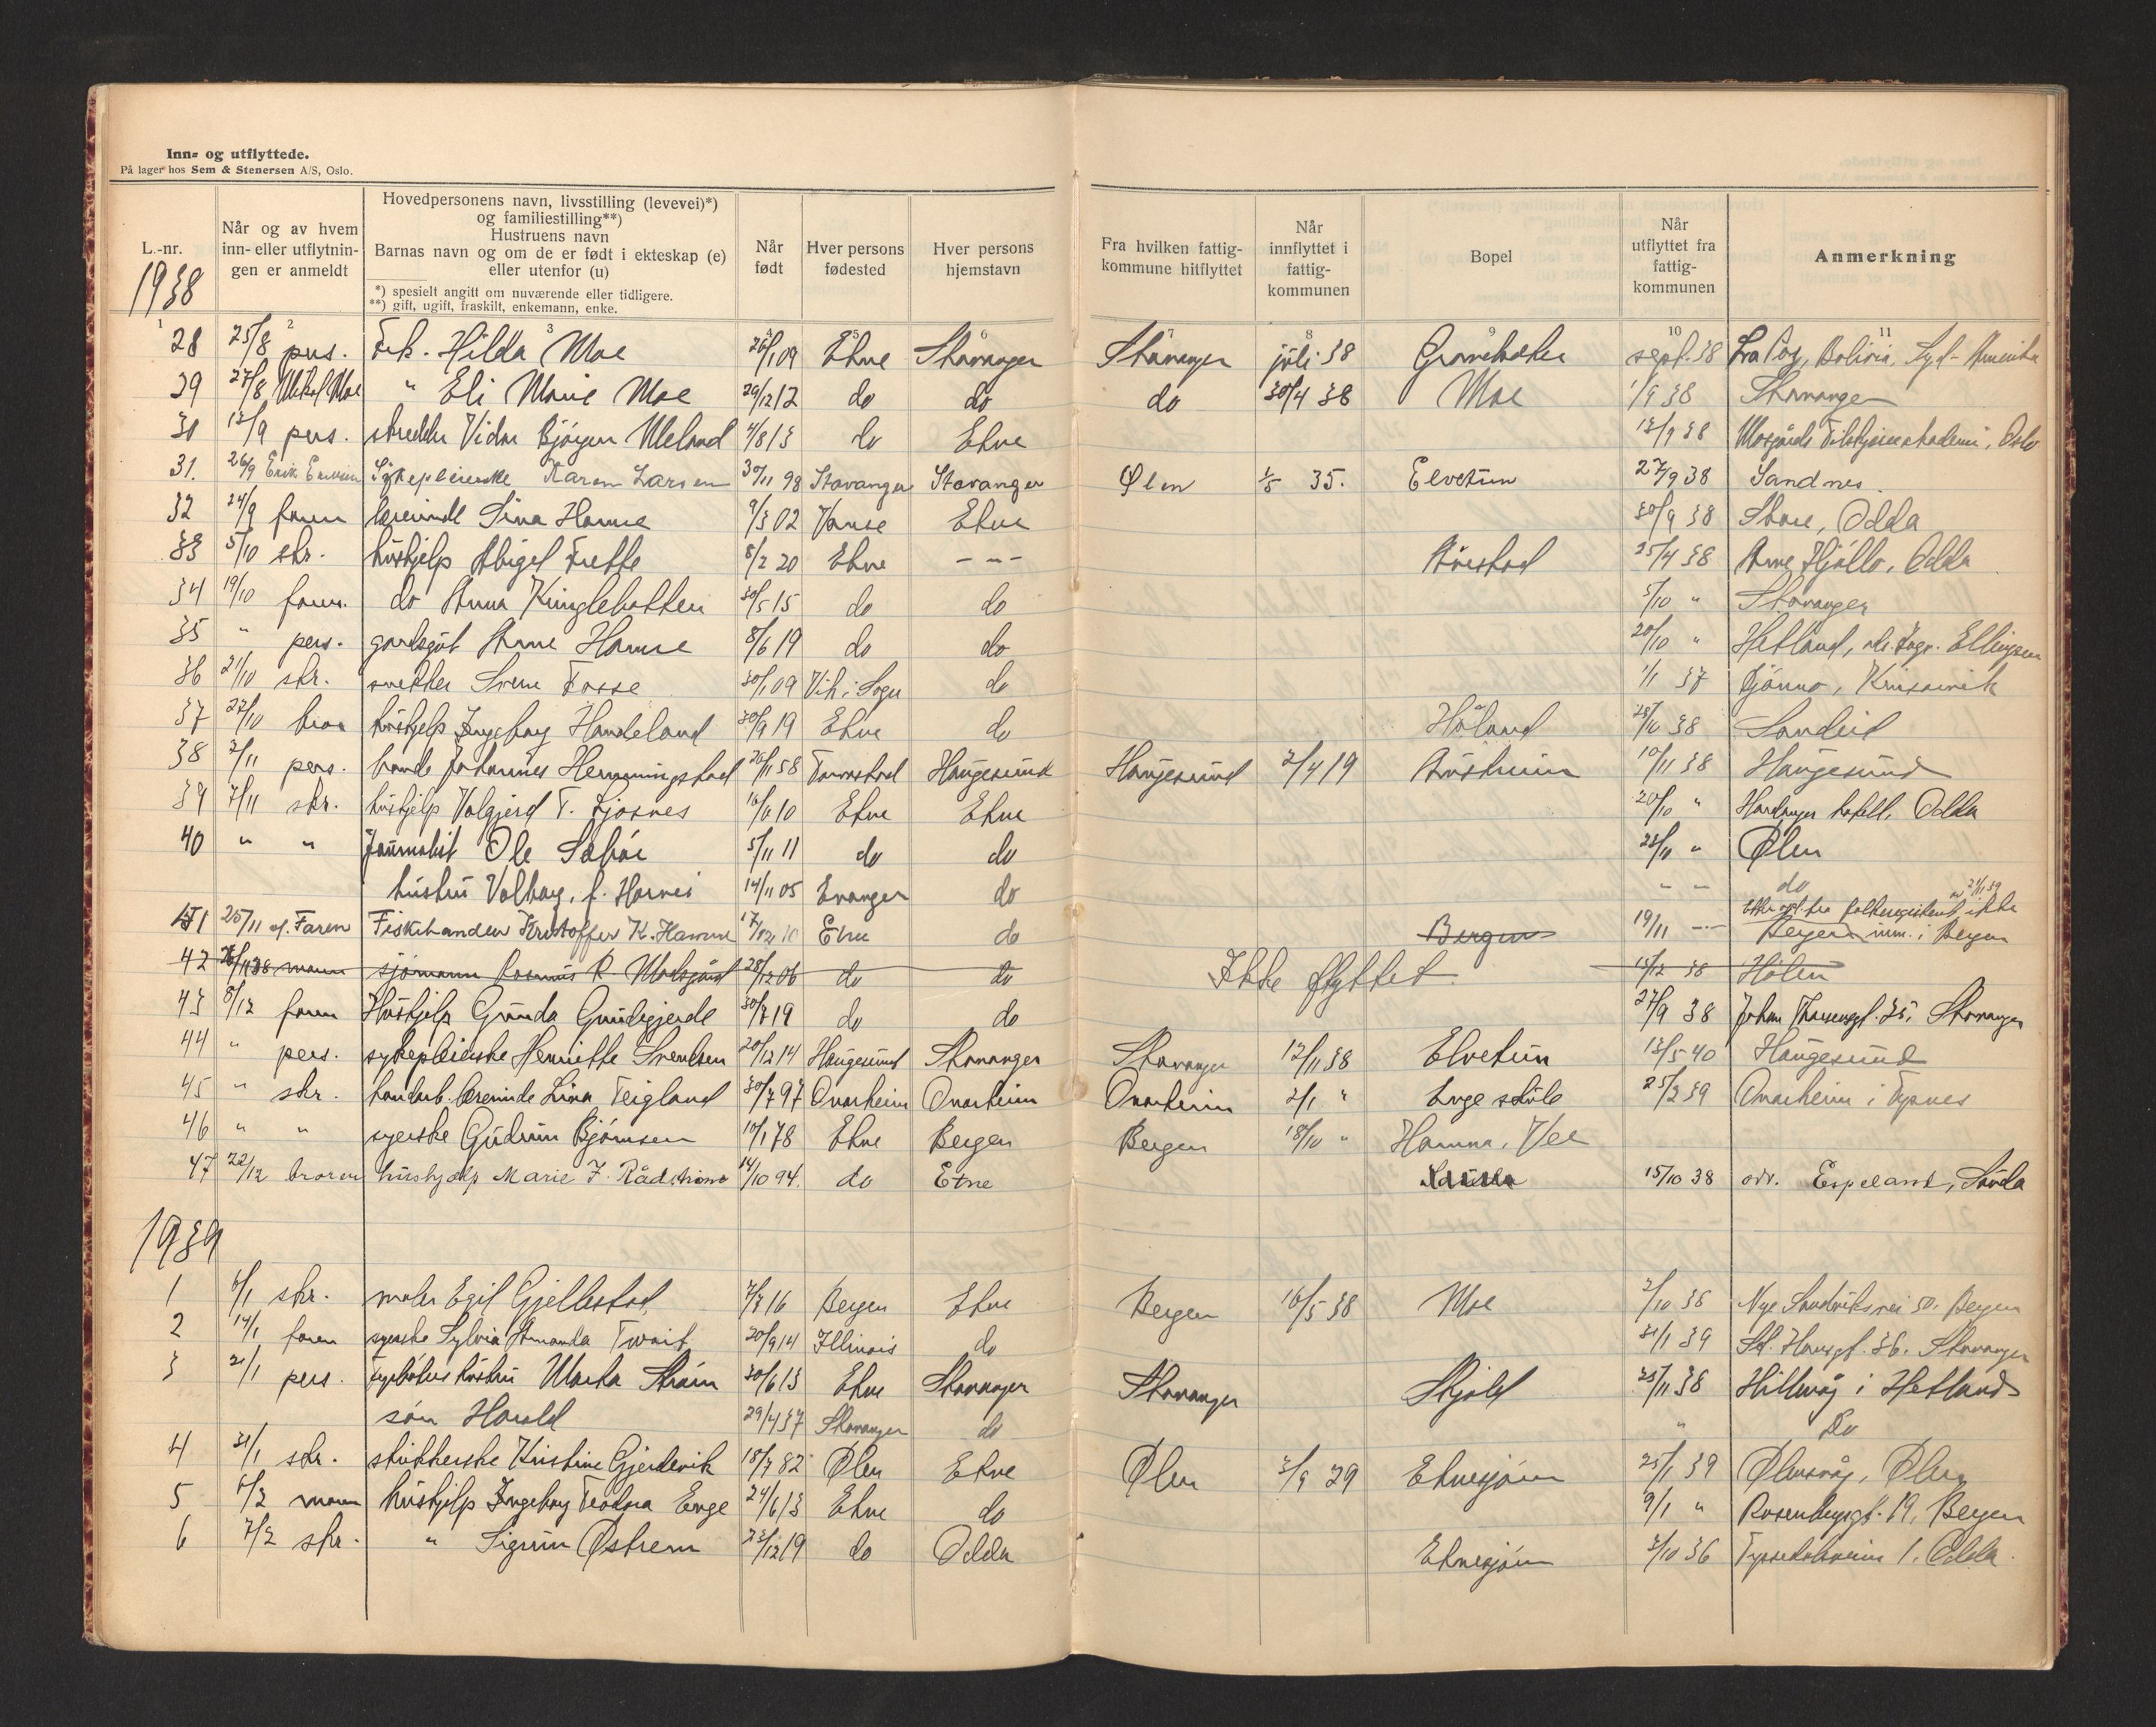 Inn- og utflyttede.
På lager hos Sem & Stenersen A/S, Oslo.
L.-nr.
Når og av hvem inn- eller utflytnin-gen er anmeldt
Hovedpersonens navn, livsstilling (levevei)*) og familiestilling**)
Hustruens navn
Barnas navn og om de er født i ekteskap (e) eller utenfor (u)
*) spesielt angitt om nuværende eller tidligere.
**) gift, ugift, fraskilt, enkemann, enke.
Når født
Hver persons fødested
Hver persons hjemstavn
Fra hvilken fattig-kommune hitflyttet
Når innflyttet i fattig-kommunen
Bopel
Når utflyttet fra fattig-kommunen
Anmerkning
1 2 3 5 6 7 8 9 10 11
1938
28 25/8 pers. Frk. Hilda Moe 26/1 09 Etne Stavanger Stavanger juli 38 sept. 38 La Paz, Bolivia, Syd-Amerika
29 27/8 Mikal Moe " Eli Marie Moe 26/12 12 do do do 30/4 38 Moe 1/9 38 Stavanger
30 12/9 pers. skredder Vidar Bjørgen Meland 4/8 13 do Etne 12/9 38 Tilskjærerakademi, Oslo
31. 26/9 Erik Sykepleierske Karen Larsen 30/11 98 Stavanger Stavanger Ølen 1/5 35. Elvetun 27/9 38 Sandnes.
32 24/9 faren lærerinde Sina Hamre 9/3 02 Vanse Etne 30/9 38 Skare, Odda
33 5/10 skr. hushjelp Abigel Frette 8/2 20 Etne - - - Årestad 25/4 38 Arne Hjøllo, Odda
34 19/10 faren. do Anna Kringlebotten 30/5 15 do do 5/10 " Stavanger
35 " pers. gardsgut Arne Hamre 8/6 19 do do 20/10 " Hetland, Ellingsen
36 21/10 skr. snekker Sverre Fosse 30/1 09 Vik i Sogn do 1/1 37
37 27/10 bror hushjelp Ingeborg Handeland 30/9 19 Etne do Håland 28/10 38 Sandeid
38 2/11 pers. bonde Johannes Hemmingstad 26/11 58 Torvastad Haugesund Haugesund 2/4 19 Austrheim 10/11 38 Haugesund
39 7/11 skr. hushjelp Valgjerd T. Fjøsnes 16/6 10 Etne Etne 20/10 " Hardanger hotell, Odda
40 " " Journalist Ole Sæbøe 5/11 11 do do 28/11 " Ølen
hustru Valborg, f. Horvei 14/11 05 Evanger do - - do
41 25/11 af. Faren Fiskehandler Kristoffer K. Hamre 17/12 10 Etne do Bergen 19/11 - - Etter opl. fra folkeregisteret av 21/11 39 ikke
Bergen inm. i Bergen
42 26/11 38 mann sjømann Rasmus R. 28/12 06 do do Ikke flyttet 15/12 38 Hölen
43 8/12 faren Hushjelp Gunda Grindegjerde 30/7 19 do do 27/9 38 Johan Thorsensgt. 25, Stavanger
44 " pers. sykepleierske Henriette Svendsen 20/12 14 Haugesund Stavanger Stavanger 12/11 38 Elvetun 13/5 40 Haugesund
45 " skr. handarb. lærerinde Lina Teigland 30/7 97 Onarheim Onarheim Onarheim 2/1 " Enge skule 25/2 39 Onarheim i Tysnes
46 " " syerske Gudrun Bjørnsen 10/1 78 Etne Bergen Bergen 18/10 "
47 22/12 broren hushjelp Marie J. 14/10 94. do Etne 15/10 38 adr. Espeland, Sauda
1939
1 6/1 skr. maler Egil Gjellestad 7/7 16 Bergen Etne Bergen 16/5 38 Moe 2/10 36 Nye Sandviksvei 50, Bergen
2 14/1 faren syerske Sylvia Amanda Tvait 20/9 14 Illinois do 31/1 39 St. Hansgt. 36, Stavanger
3 21/1 pers. fyrbøters hustru Marta Strøm 30/6 13 Etne Stavanger Stavanger Skjold 25/11 38 Hillevåg i Hetland
søn Harald 29/4 37 Stavanger do " Do
4 31/1 skr. strikkerske Kristine Gjerdevik 18/7 82 Ølen Etne Ølen 3/9 29 Etnesjøen 25/1 39 Ølensvåg, Ølen
5 6/2 moren hushjelp Ingeborg Teodora Enge 24/6 13 Etne do 9/1 " Rosenbergsgt. 19, Bergen
6 7/2 skr. " Sigrun Østrem 23/12 19 do Odda Etnesjøen 3/10 36 Tyssedalsveien 1, Odda.